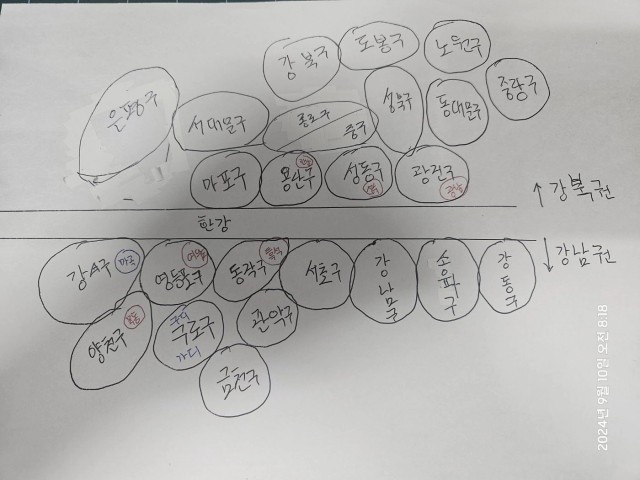 강북구
도봉구
노원구
은평구
서대문구
종로구
중구
성북구
동대문구
중랑구
마포구
용산구
성동구
광진구
↑강북권
한강
↓강남권
강서구
마곡
영등포구
동작구
서초구
강남구
송파구
강동구
양천구
목동
구디
구로구
가디
관악구
금천구
2024년 9월 10일 오전 8:18